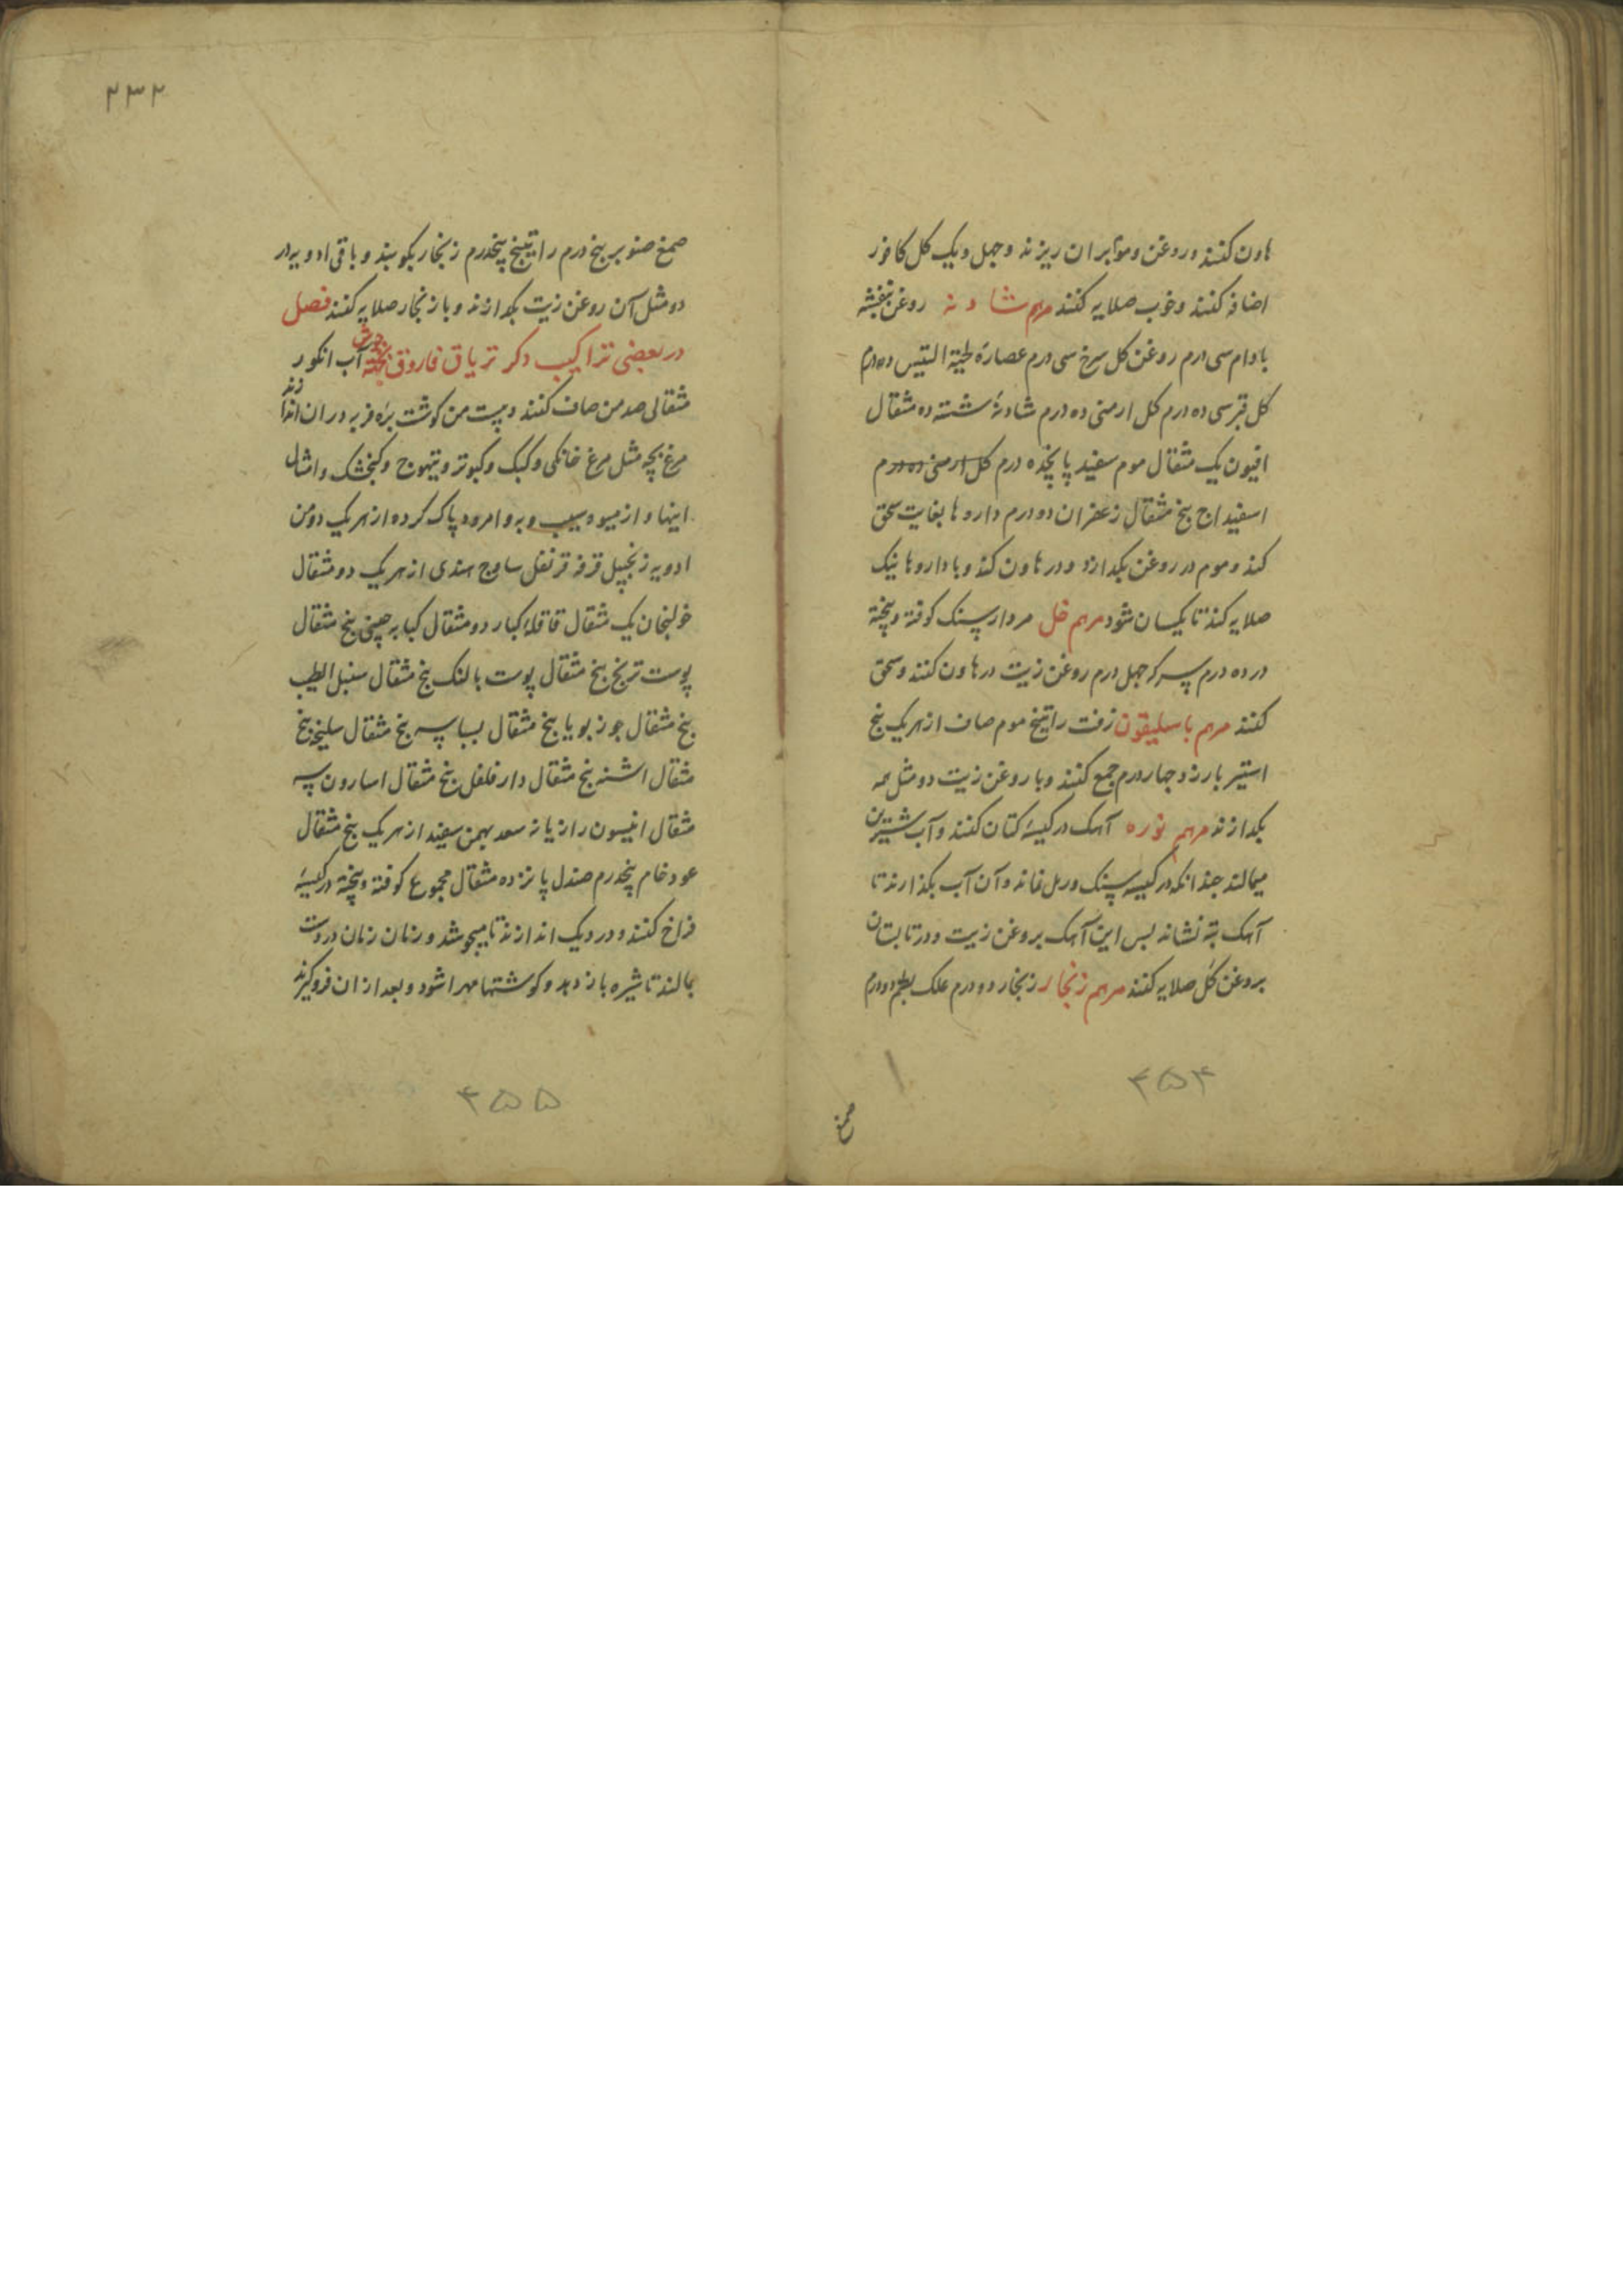 هاون کنند و روغن و موم بران ریزند و چهل و یک کل کافور
اضافه کنند و خوب صلایه کنند مرهم شادنه روغن بنفشه
بادام سی درم روغن کل سرخ سی درم عصارهٔ لحیة التیس ده درم
کل قبرسی ده درم کل ارمنی ده درم شادنهٔ شسته ده مثقال
افیون یک مثقال موم سفید پانجده درم کل ارمنی ده درم
اسفیداج پنج مثقال زعفران دو درم داروها بغایت سحق
کند و موم در روغن بکدازد و در هاون کند و با داروها نیک
صلایه کند تا یکسان شود مرهم خل مردارسنک کوفته و بیخته
در ده درم سرکه چهل درم روغن زیت در هاون کنند و سحق
کنند مرهم باسلیقون زفت راتینج موم صاف از هر یک پنج
استیر بارزد چهار درم جمع کنند و با روغن زیت دو مثل همه
بکدازند مرهم نوره آهک در کیسهٔ کتان کنند و آب شیرین
میمالند چندانکه در کیسه سنک و رمل نماند و آن آب بکذارند تا
آهک بته نشاند بس این آهک بروغن زیت و در تابستان
بروغن کل صلایه کنند مرهم زنجار زنجار دو درم علک بطم دو درم
۴۵۴
صمغ
۲۳۲
صمغ صنوبر پنج درم راتینج پنجدرم زنجار بکوبند و باقی ادویه در
دو مثل آن روغن زیت بکدازند و با زنجار صلایه کنند فصل
در بعضی تراکیب دکر تریاق فاروق آب انکور
مثقالی صد من صاف کنند و بیست من کوشت بره فربه دران اندازند
مرغ بچه مثل مرغ خانکی و کبک و کبوتر و تیهوج و کنجشک و امثال
اینها و از میوه سیب و به و امرود پاک کرده از هر یک دو من
ادویه زنجبیل قرفه قرنفل ساذج هندی از هر یک دو مثقال
خولنجان یک مثقال قاقلهٔ کبار دو مثقال کبابه چینی پنج مثقال
پوست ترنج پنج مثقال پوست بالنک پنج مثقال سنبل الطیب
پنج مثقال جوز بویا پنج مثقال بسباسه پنج مثقال سلیخه پنج
مثقال اشنه پنج مثقال دارفلفل پنج مثقال اسارون سه
مثقال انیسون رازیانه سعد بهمن سفید از هر یک پنج مثقال
عود خام پنجدرم صندل پانزده مثقال مجموع کوفته و بیخته در کیسهٔ
فراخ کنند و در دیک اندازند تا میجوشد و زمان زمان در دست
بمالند تا شیره باز دهد و کوشتها مهرا شود و بعد ازان فرو کیرند
۴۵۵